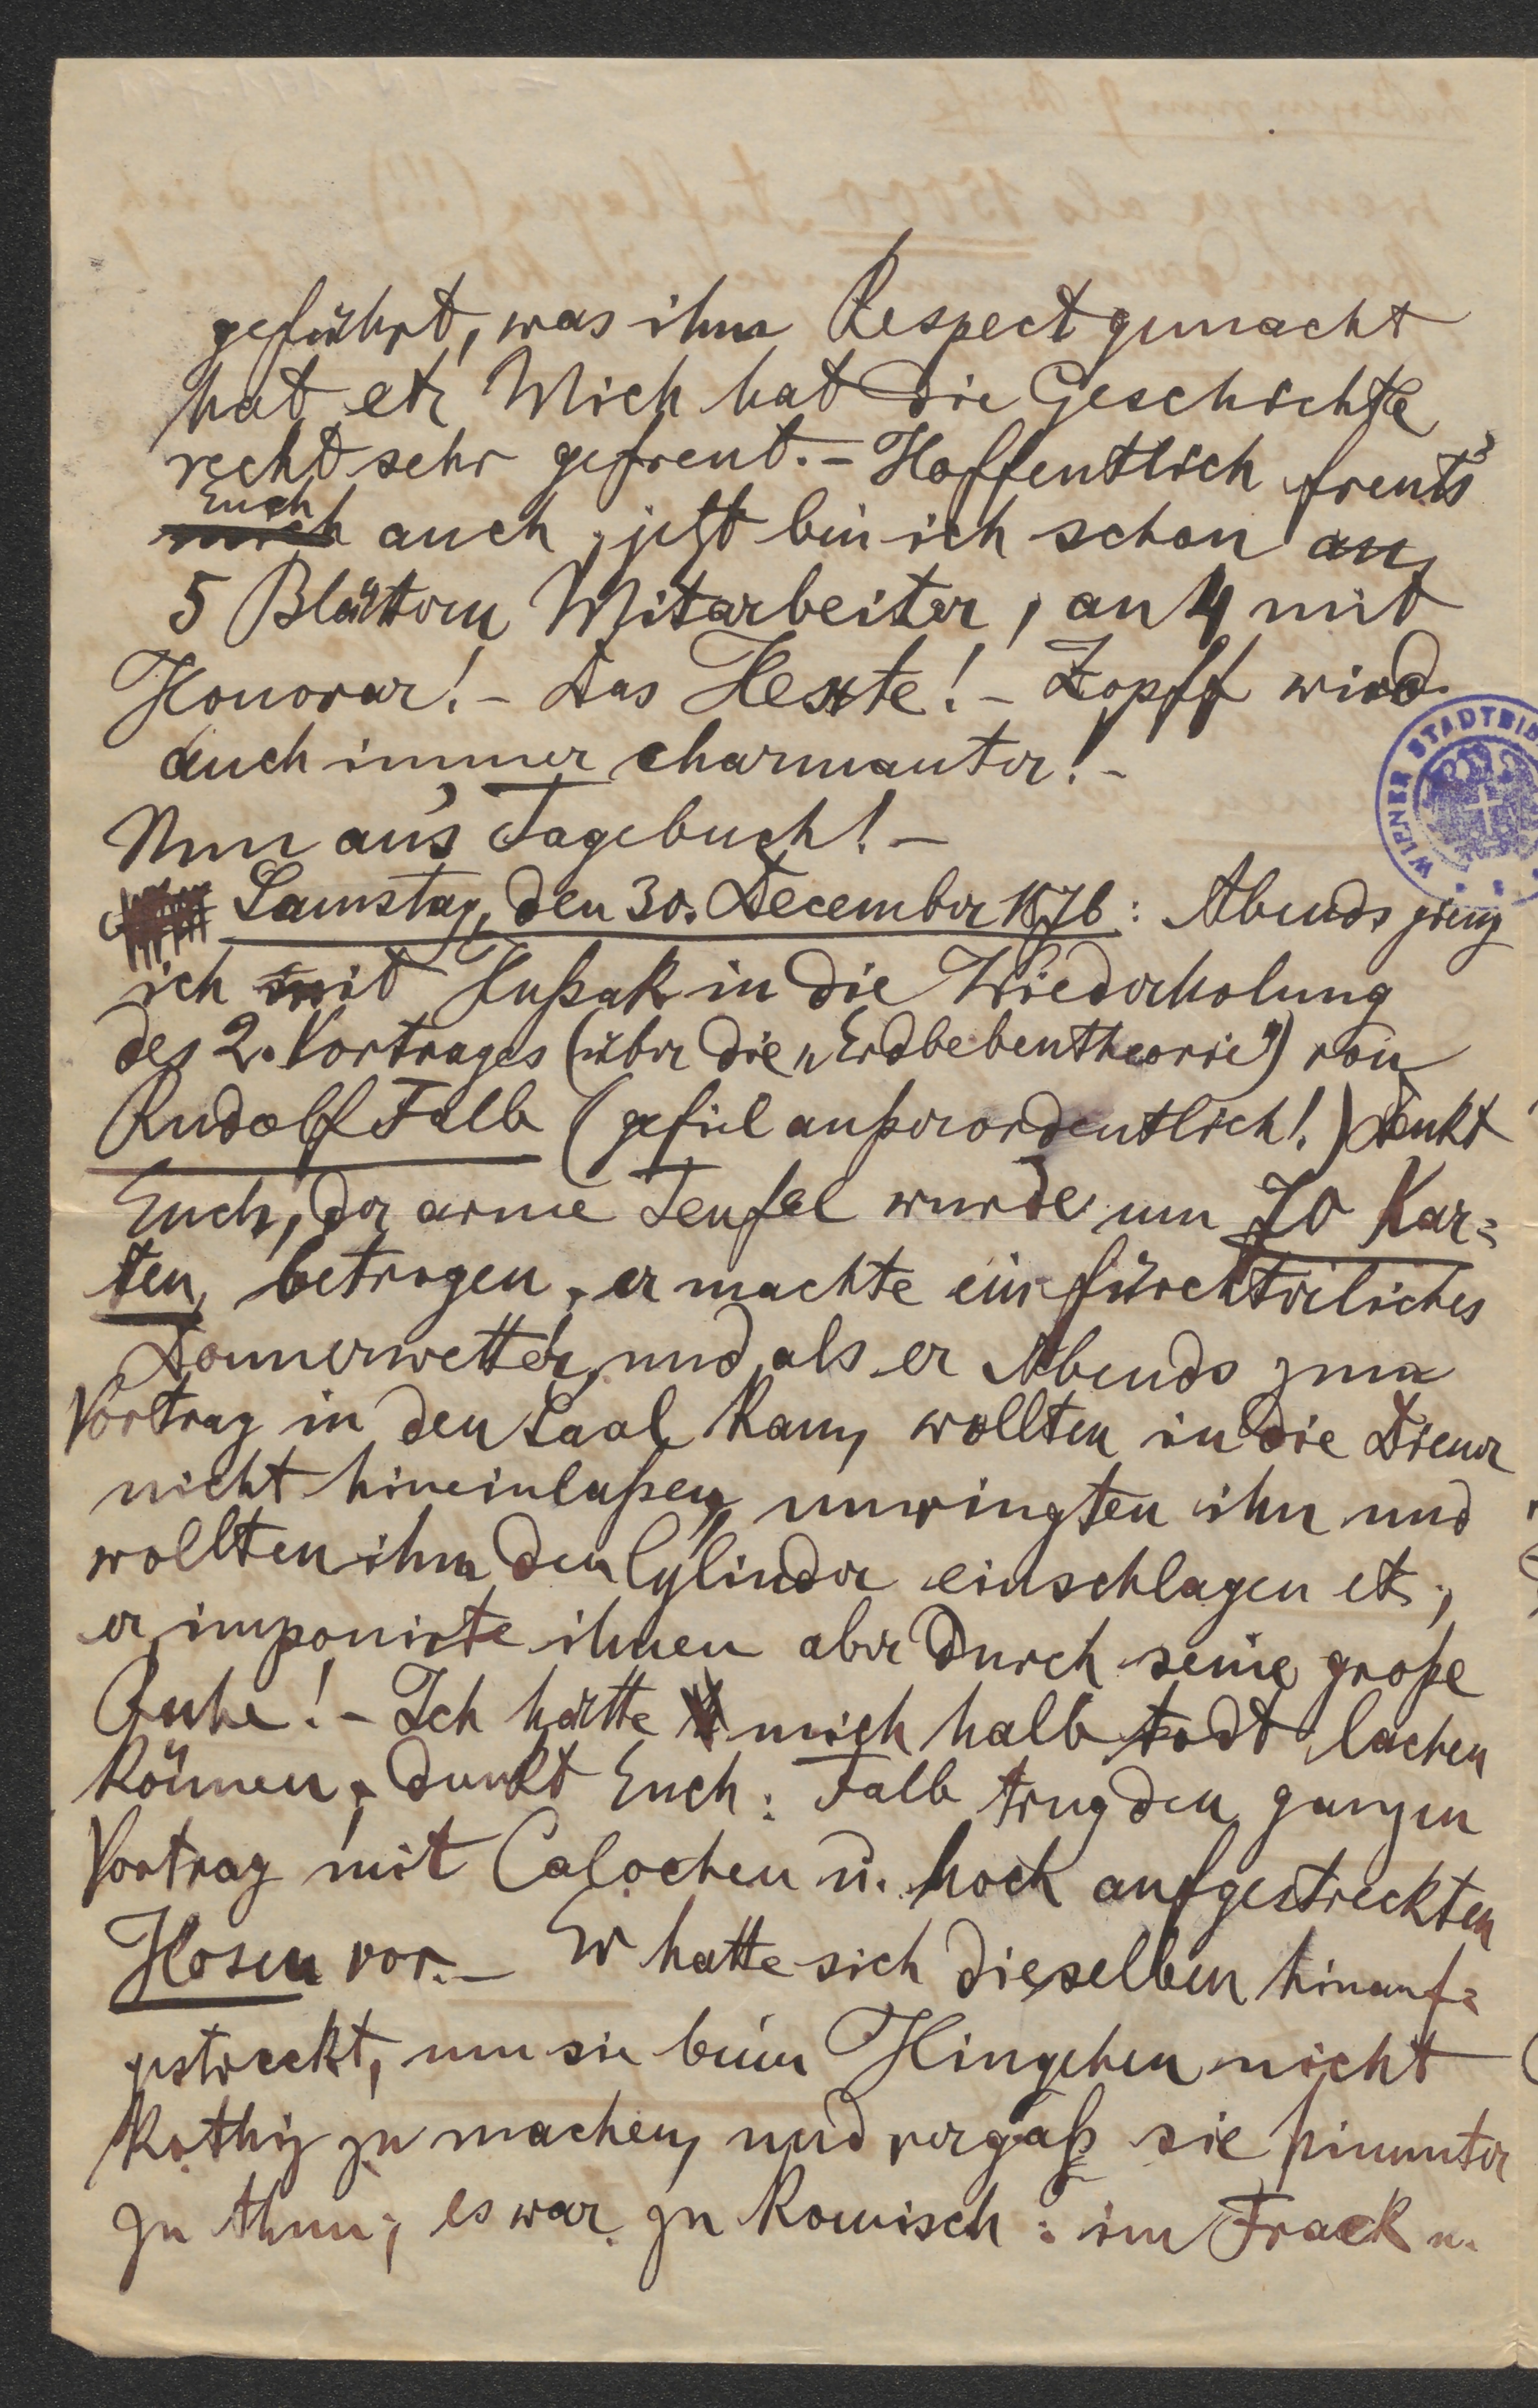 geführt, was ihm Respect gemacht
hat etc Mich hat die Geschichte
recht sehr gefreut. – Hoffentlich freut's
Euch
auch; jetzt bin ich schon an
5 Blättern Mitarbeiter, an 4 mit
Honorar! – Das Hexte! – Zopff wird
auch immer charmanter! –
Nun an's Tagebuch! –
Samstag, den 30. December 1876: Abends gieng
ich mit Hußak in die Wiederholung
des 2. Vortrages (über die „Erdbebentheorie") von
Rudolf Falb (gefiel außerordentlich!) Denkt
Euch, der arme Teufel wurde um 70 Kar=
ten betrogen, er machte ein fürchterliches
Donnerwetter, und als er Abends zum
Vortrag in den Saal kam, wollten in die Diener
nicht hineinlaßen, umringten ihn und
wollten ihm den Cylinder einschlagen etc;
er imponirte ihnen aber durch seine große
Ruhe! – Ich hätte mich halb todt lachen
können, denkt Euch: Falb trug den ganzen
Vortrag mit Calochen u. hoch aufgestreckten
Hosen vor. – Er hatte sich dieselben hinauf=
gestreckt, um sie beim Hingehen nicht
kothig zu machen, und vergaß sie hinunter
zu thun; es war zu komisch: im Frack u.
WIENER STADTBIB